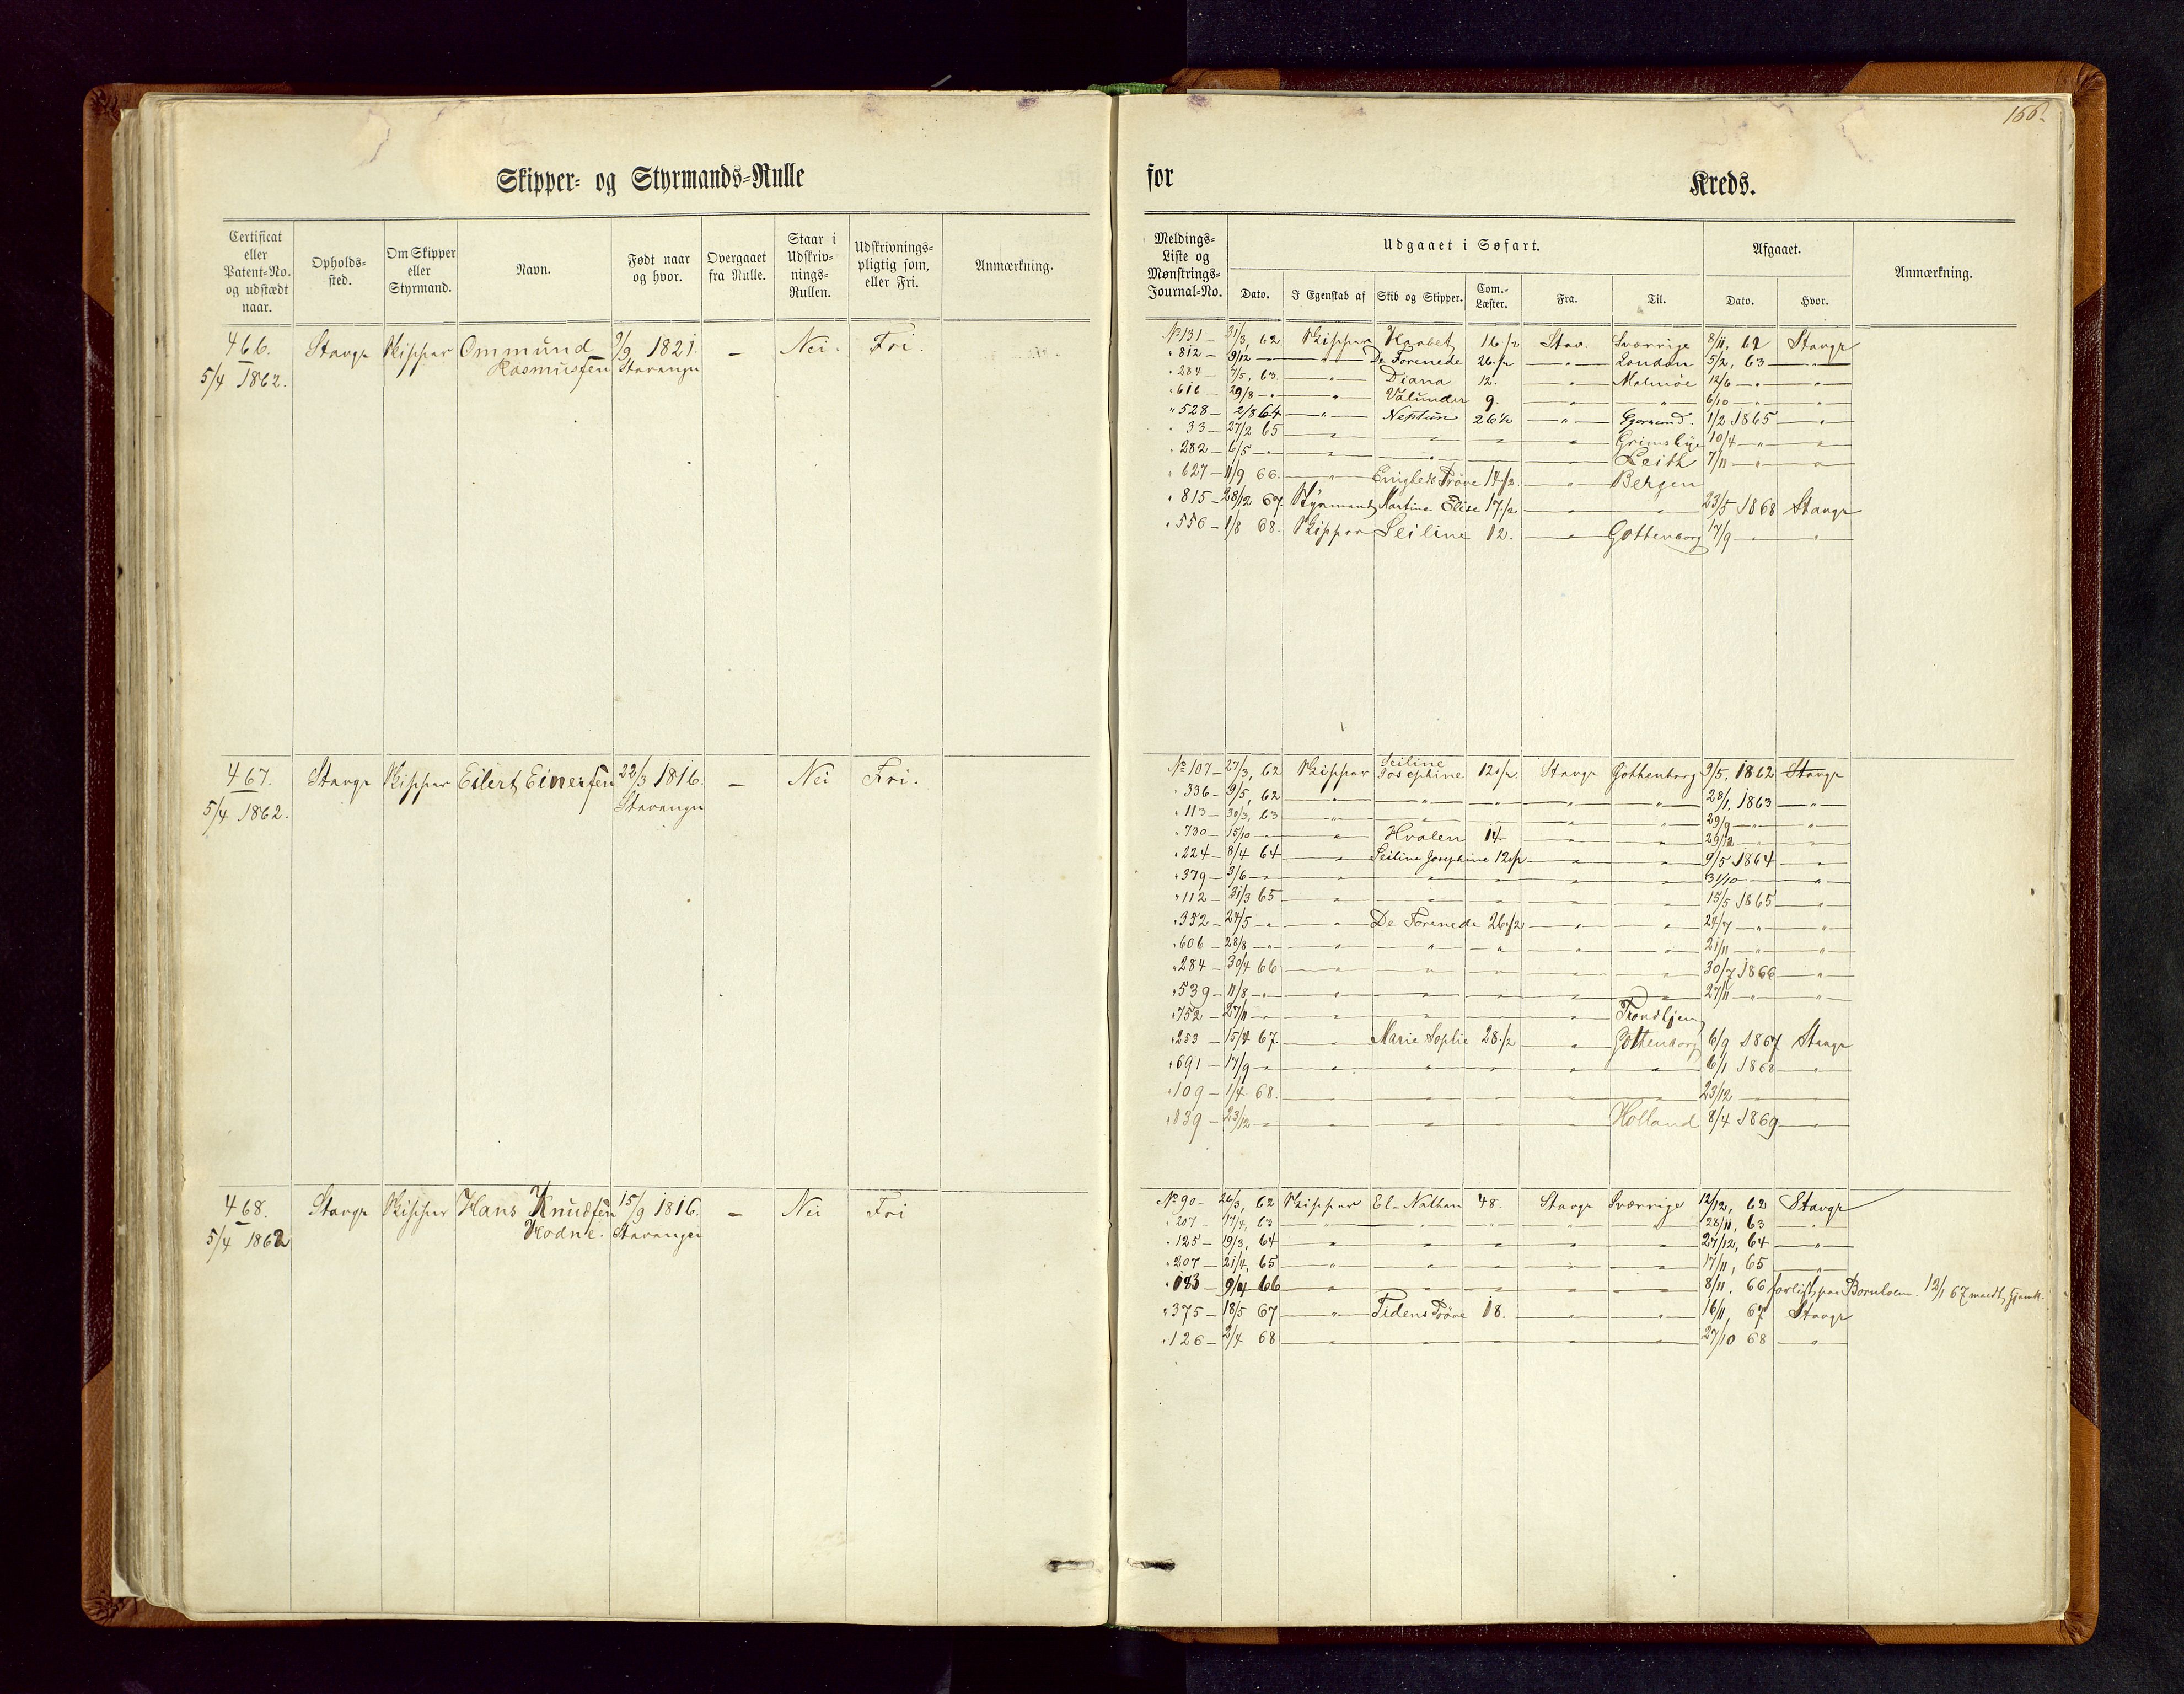 156.
Skipper- og Styrmands-Rulle
for
Kreds.
Certificat eller Patent-No. og udstædt naar.
Opholds-sted.
Om Skipper eller Styrmand.
Navn.
Født naar og hvor.
Overgaaet fra Rulle.
Staar i Udskriv-nings-Rullen.
Udskrivnings-pligtig som, eller Fri.
Anmærkning.
Meldings-Liste og Mønstrings-Journal-No.
Udgaaet i Søfart.
Dato.
I Egenskab af
Skib og Skipper.
Com.-Læster.
Fra.
Til.
Afgaaet.
Dato.
Hvor.
Anmærkning.
466. Stavgr Skipper Ommund 9/9 1821. — Nei. Fri.
5/4 1862. Rasmussen Stavanger
No 131 — 31/3, 62 Skipper Haabet 16 1/2 Stav. Sverrige 8/11, 62 Stavgr
" 812 — 9/12 — " — De Forenede 26 1/2 — " — London 5/2, 63 — " —
" 284 — 7/5, 63. — " — Diana 12. " Malmöe 12/6 — " — "
" 616 — 29/8 — " — " — Valunder 9. " " 6/10 — " — "
" 528 — 2/8 64 — " — Neptun 26 1/2 — " — Egersund. 1/2 1865 — " —
" 33 — 27/2 65 — " — " — " — " Grimsbye 10/4 — " — "
" 282 — 6/5 — " — " — " — Leith 7/11 — " — "
" 627 — 11/9 66. — " — Enighets Prøve 17 1/2. — " — Bergen
" 815 — 28/12 67. Styrmand Martine Elise 17 1/2 — " — " — 23/5 1868 Stavgr
" 556 — 1/8 68. Skipper Seiline 12. — " — Gottenborg 17/9 — " — "
467. Stavgr Skipper Eilert Einersen 22/3 1816. — Nei Fri.
5/4 1862. Stavanger
No 107 — 27/3, 62 Skipper Seiline Josephine 12 1/2. Stavgr Gothenborg 9/5, 1862 Stavgr
" 336 — 9/5, 62 — " — " — " — " — " 28/1, 1863 — " —
" 113 — 30/3, 63 — " — " — " — " 29/9 — " — "
" 730 — 15/10 — " — " Hvalen 14 — " — " 29/12 — " — "
" 224 — 8/4 64 — " — Seiline Josephine 12 1/2 — " — " 9/5 1864 — "
" 379 — 3/6 — " — " — " — " — " 31/10 — " — "
" 112 — 31/3 65 — " — " — " — " — " 15/5 1865 — "
" 352 — 24/5 — " — " — De Forenede 26 1/2 — " — " 24/7 — " — "
" 606 — 28/8 — " — " — " — " — " — " 21/11 — " — "
" 284 — 30/4 66 — " — " — " — " — " 30/7 1866 — " —
" 539 — 11/8 — " — " — " — " — " — " 27/11 — " — "
" 752 — 27/11 — " — " — " — " — " Trondhjem
" 253 — 15/4 67. — " — Marie Sophie 28 1/2 — " — Gottenborg 6/9 1867 Stavgr
" 691 — 17/9 — " — " — " — " — " — " 6/1 1868 — " —
" 109 — 1/4 68. — " — " — " — " — " 23/12 — " — "
" 839 — 23/12 — " — " — " — " — Holland 8/4 1869 — " —
468. Stavgr Skipper Hans Knudsen 15/9 1816. — Nei Fri
5/4 1862 Hodne. Stavanger
No 90 — 26/3, 62 Skipper El-Nathan 48. Stavgr Sverrige 12/12, 62 Stavgr
" 207 — 17/4, 63 — " — " — " — " — " 28/11, 63 — " —
" 125 — 19/3, 64 — " — " — " — " — " 27/12, 64 — " —
" 207 — 21/4, 65 — " — " — " — " — " 17/11, 65 — " —
" 183 — 9/4 66 — " — " — " — " — " 8/11. 66 forlist paa Bornholm. 12/1 67
" 375 — 18/5 67 — " — Tidens Prøve 18. — " — " 16/11, 67 Stavgr
" 126 — 2/4 68 — " — " — " — " — " 27/10 68 — " —